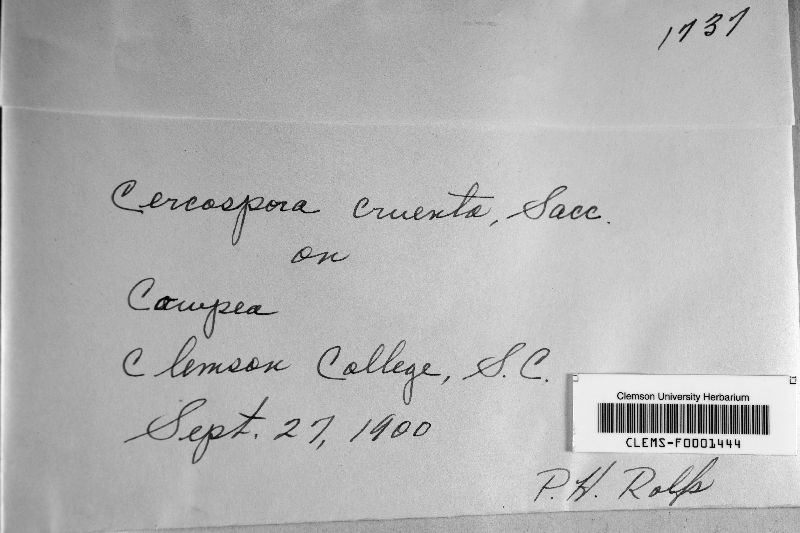 1737
Cercospora cruenta, Sacc.
on
Cowpea
Clemson College, S.C.
Sept. 27, 1900
Clemson University Herbarium
CLEMS-F0001444
P. H. Rolfs